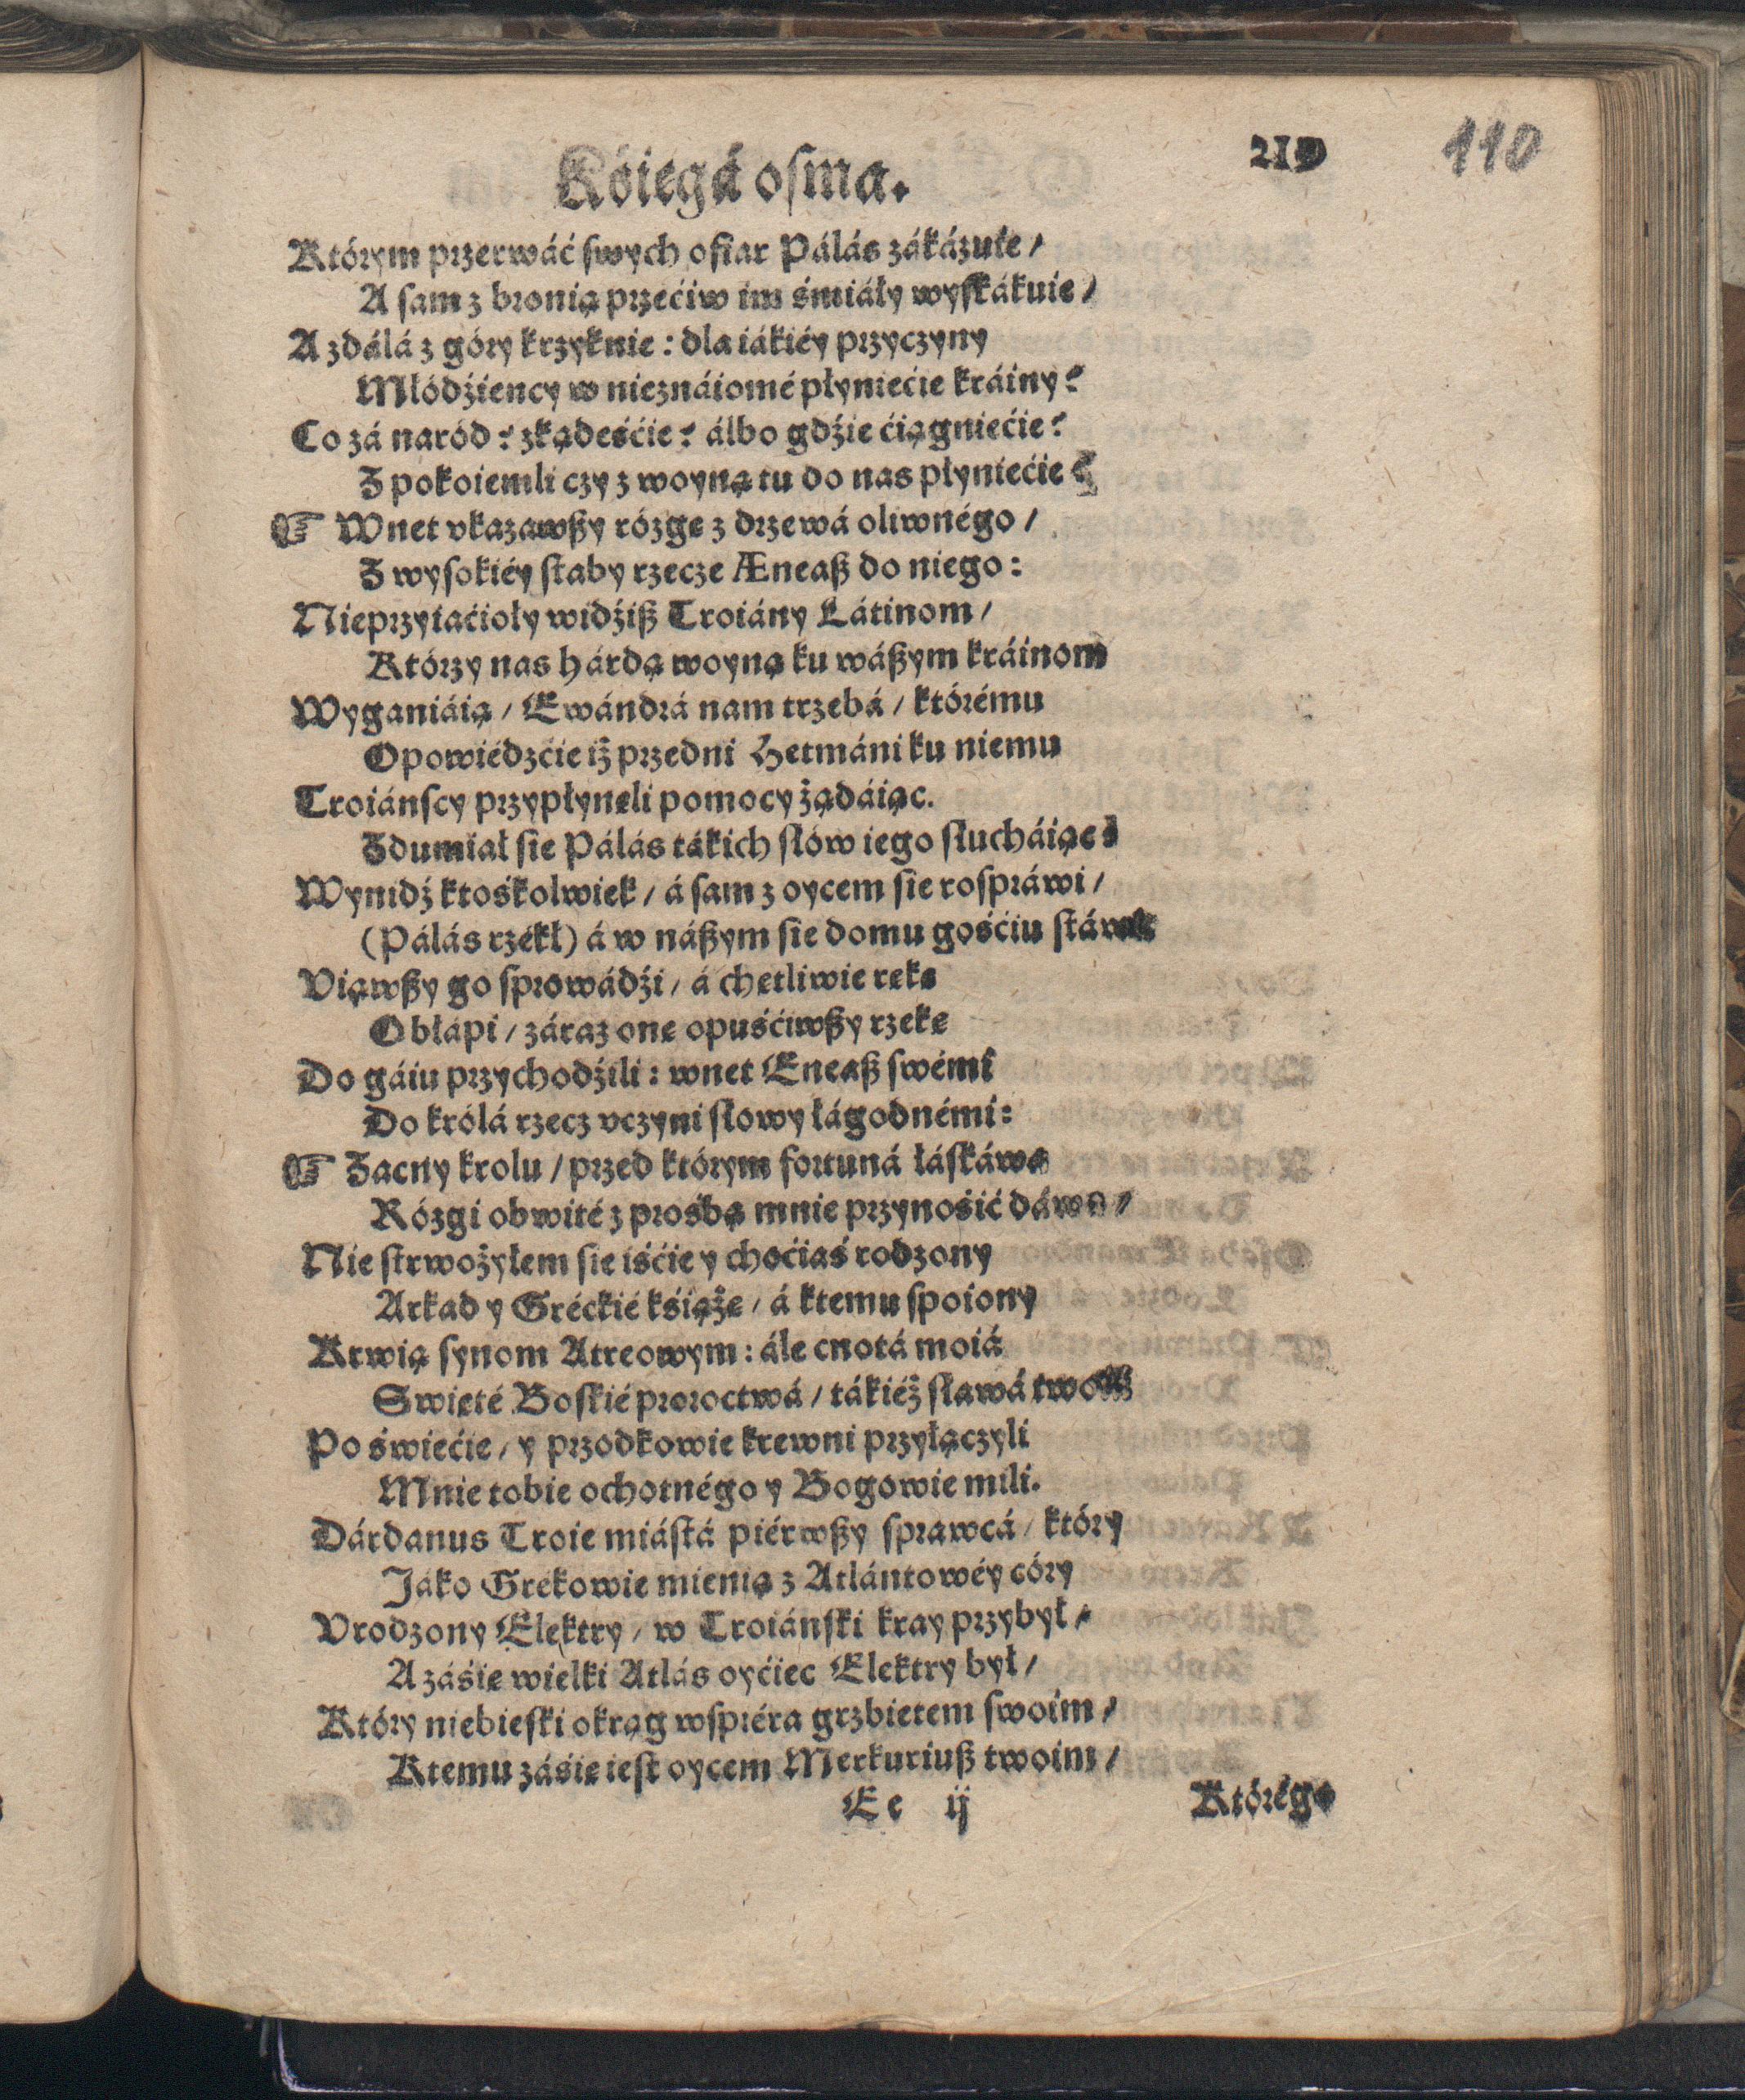 Kśięgá oſma.
219
110
Którym przerwáć ſwych ofiar Pálás zákázuie /
A ſam z bronią przećiw im śmiáły wyſkákuie /
A zdálá z góry krzyknie : dla iákiéy przyczyny
Młódźiency w nieznáiomé płyniećie kráiny?
Co zá naród? zkądeśćie? álbo gdźie ćiągniećie?
Z pokoiemli czy z woyną tu do nas płyniećie?
☞ Wnet vkazawßy rózgę z drzewá oliwnégo /
Z wyſokiéy ſtaby rzecze Æneaß do niego :
Nieprzyiaćioły widźiß Troiány Látinom /
Którzy nas hárdą woyną ku wáßym kráinom
Wyganiáią / Ewándrá nam trzebá / którému
Opowiédzćie iż przedni Hetmáni ku niemu
Troiánſcy przypłynęli pomocy żądáiąc.
Zdumiał ſie Pálás tákich ſłów iego ſłucháiąc:
Wynidź ktośkolwiek / á ſam z oycem ſie roſpráwi /
(Pálás rzékł) á w náßym ſie domu gośćiu ſtáw
Viąwßy go ſprowádźi / á chętliwie rękę
Obłápi / záraz onę opuśćiwßy rzekę
Do gáiu przychodźili : wnet Eneaß ſwémi
Do królá rzecz vczyni ſłowy łágodnémi :
☞ Zacny krolu / przed którym fortuná łáſkáwa
Rózgi obwité z prośbą mnie przynośić dáwa /
Nie ſtrwożyłem ſie iśćie y choćiaś rodzony
Arkad y Gréckié kśiążę / á ktemu ſpoiony
Krwią ſynom Atreowym : ále cnotá moiá
Swięté Boſkié proroctwá / tákiéż ſławá
Po świećie / y przodkowie krewni przyłączyli
Mnie tobie ochotnégo y Bogowie mili.
Dárdanus Troie miáſtá piérwßy ſprawcá / który
Jáko Grékowie mienią z Atlántowéy córy
Vrodzony Elektry / w Troiánſki kray przybył /
A záśię wielki Atlás oyćiec Elektry był /
Który niebieſki okrąg wſpiéra grzbietem ſwoim /
Ktemu záśię ieſt oycem Merkuriuß twoim /
Ee ij
Którégo